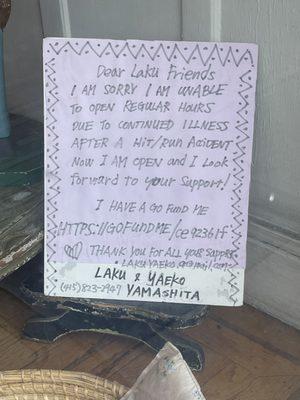 Dear Laku Friends
I AM SORRY I AM UNABLE
TO OPEN REGULAR HOURS
DUE TO CONTINUED ILLNESS
AFTER A HIT/RUN ACCIDENT
NOW I AM OPEN and I Look
forward to your Support!
I HAVE A GO FUND ME
HTTPS://GOFUND.ME/ce92361f
THANK YOU FOR ALL YOUR Support
LAKU & YAEKO
(415) 823-2947 YAMASHITA